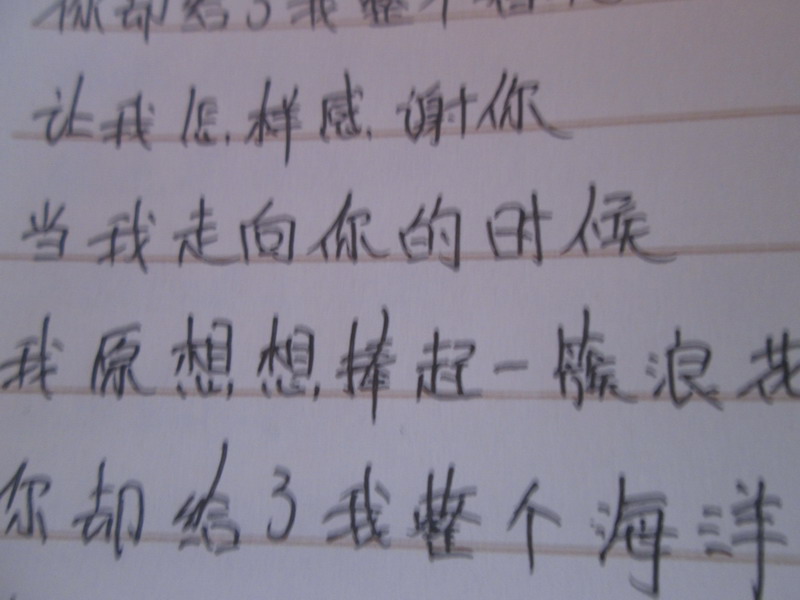 你却给了我整个
让我怎样感谢你
当我走向你的时候
我原想想捧起一簇浪花
你却给了我整个海洋